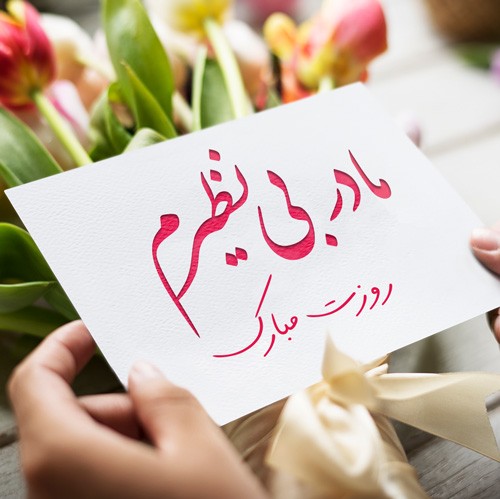 مادر بی نظیرم
روزت مبارک